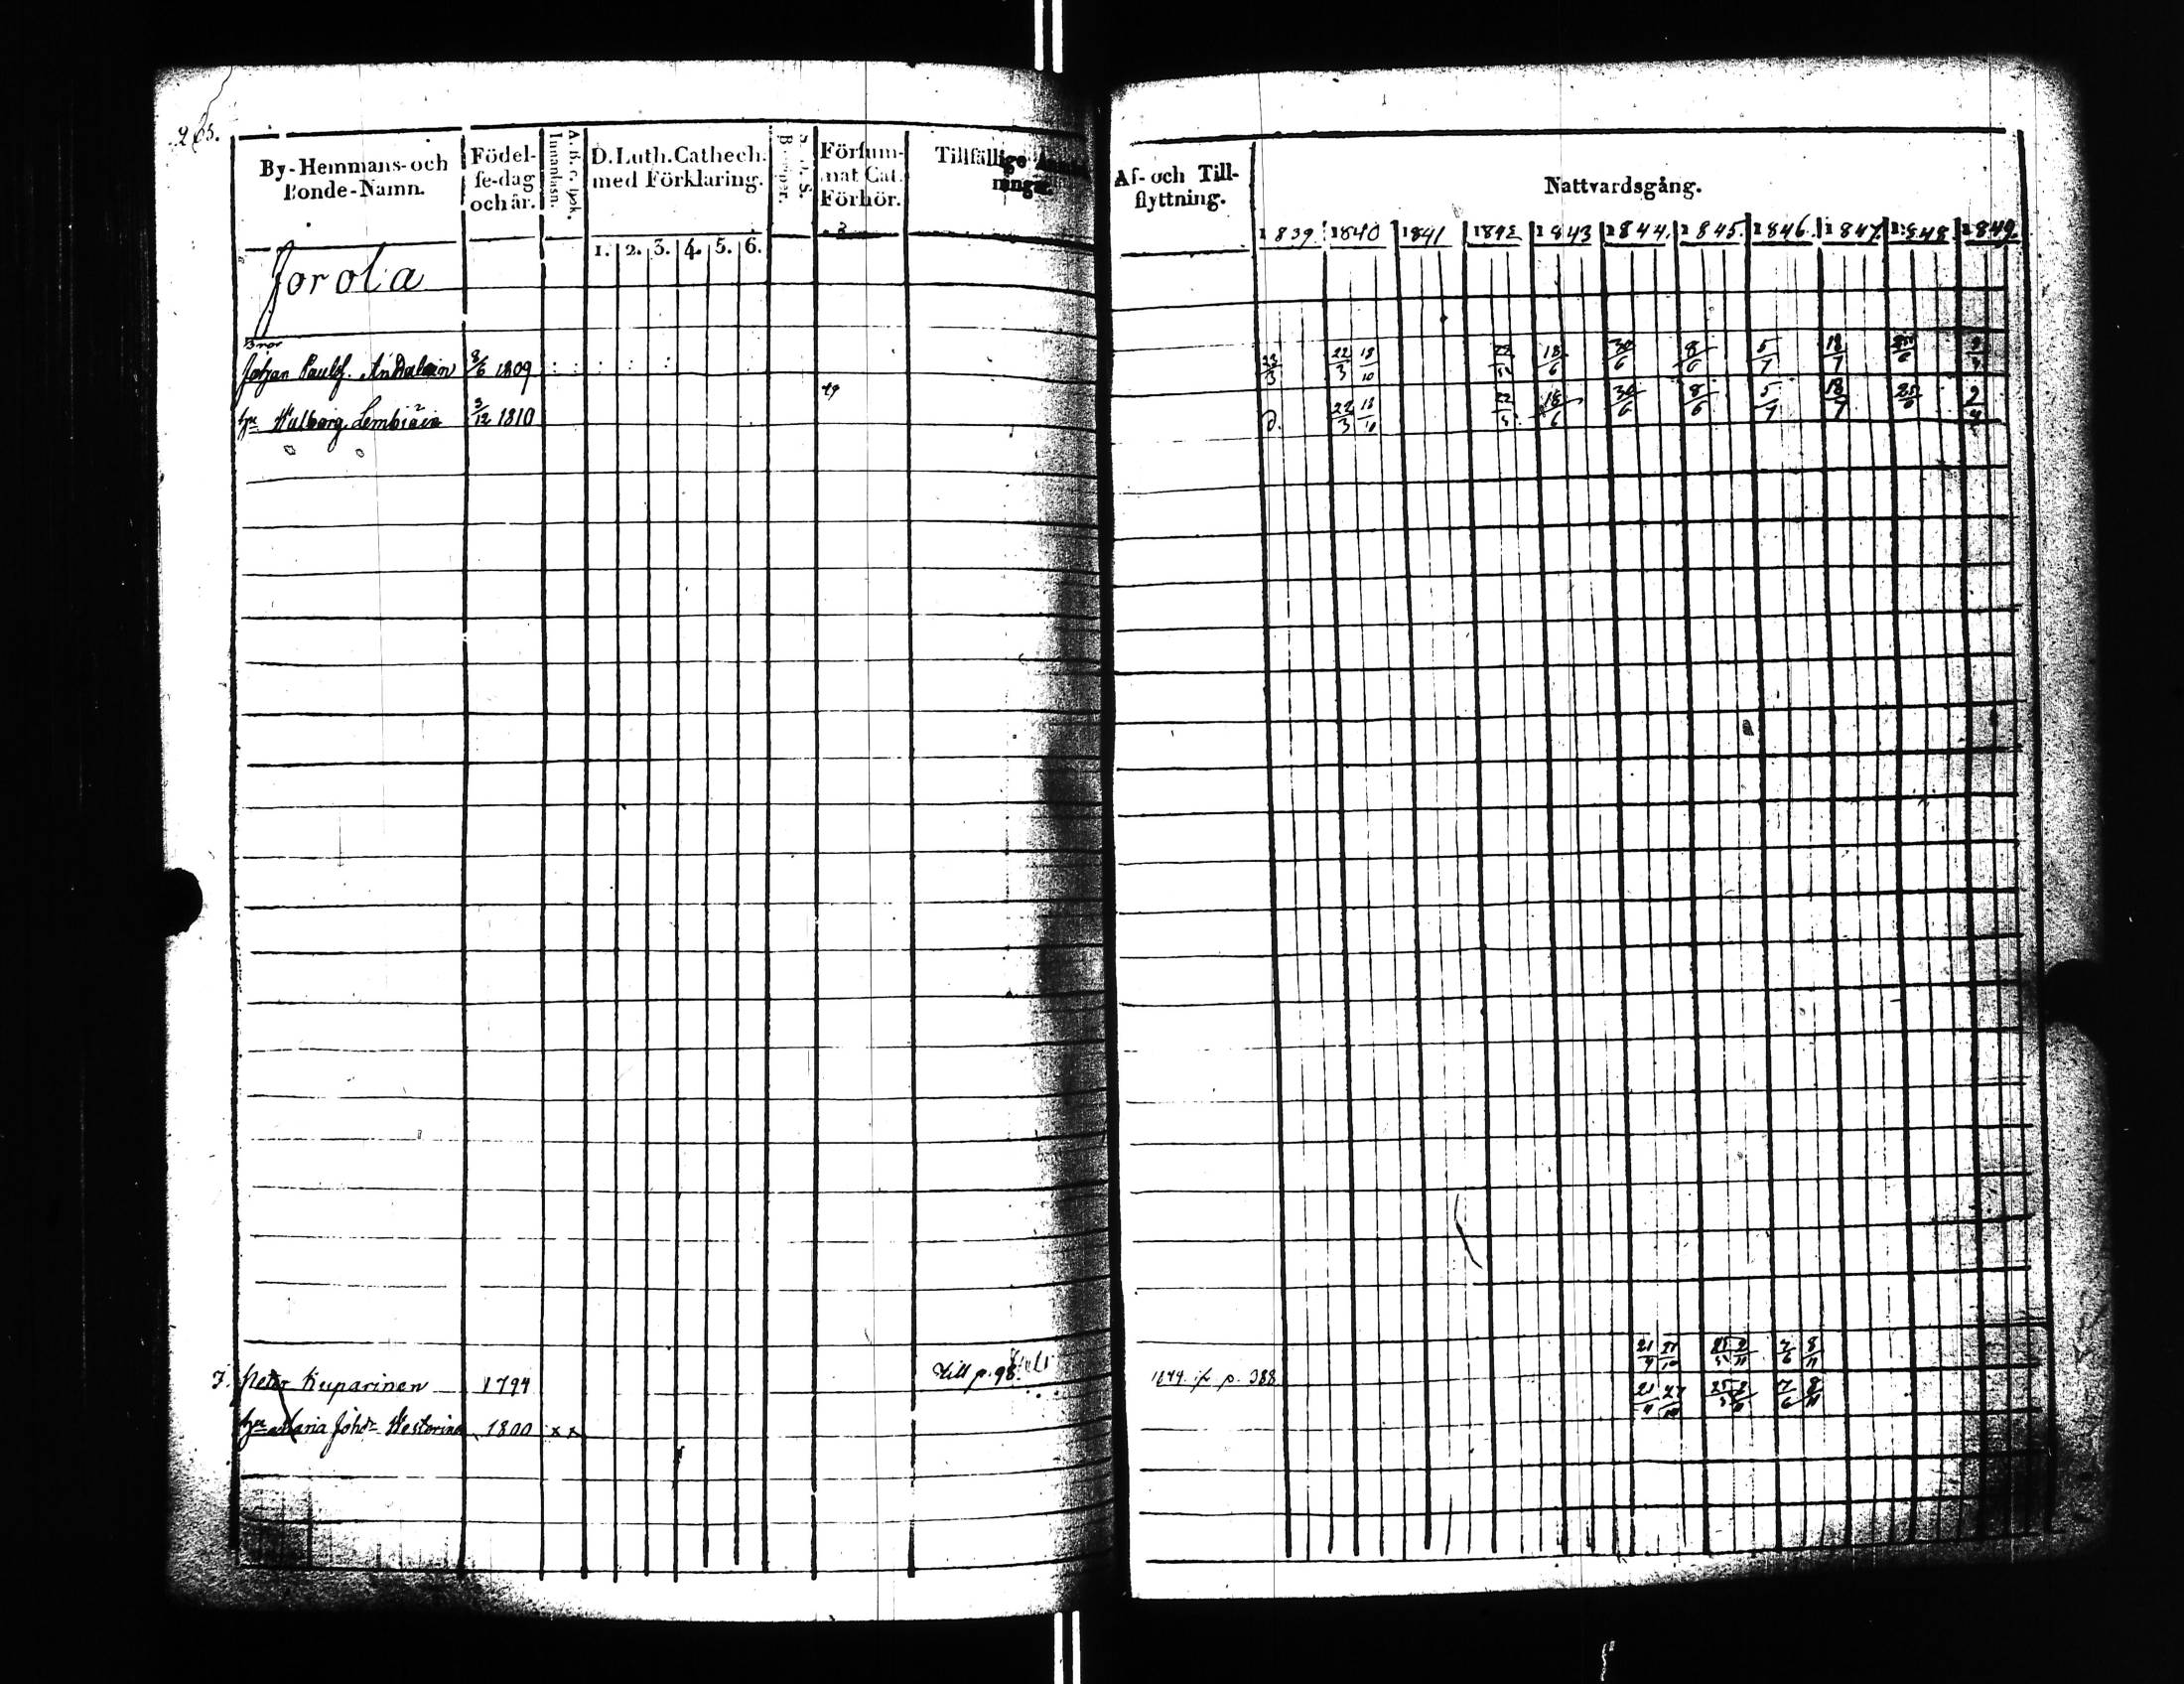 By-Hemmans-och Bonde-Namn.
Födelse-dag och år.
A. B. c. bok. Innanläsn.
D. Luth. Cathech. med Förklaring.
1. 2. 3. 4. 5. 6.
Försum-nat Cat. Förhör.
Tillfällige
Af- och Till-flyttning.
Nattvardsgång.
1839. 1840 1841 1842 1843 1844. 1845. 1846. 1847. 1848. 1849.
Jorola
Bror
Johan Paulsf. 8/6 1809 22/3 22/3 18/10 18/6 30/6 8/6 5/7 18/7
Hu Walborg 3/12 1810 49 d. 22/3 18/10 22/3 18/6 30/6 8/6 5/7 18/7 25/6 2/4
21/4 27/10 25/5 2/11 7/6 8/11
J. Peter Kuparinen 1794 till p. 98. 1844 if p. 388 21/4 27/10 25/5 2/11 7/6 8/11
Hu Maria Johdr Westerinen 1800 x x